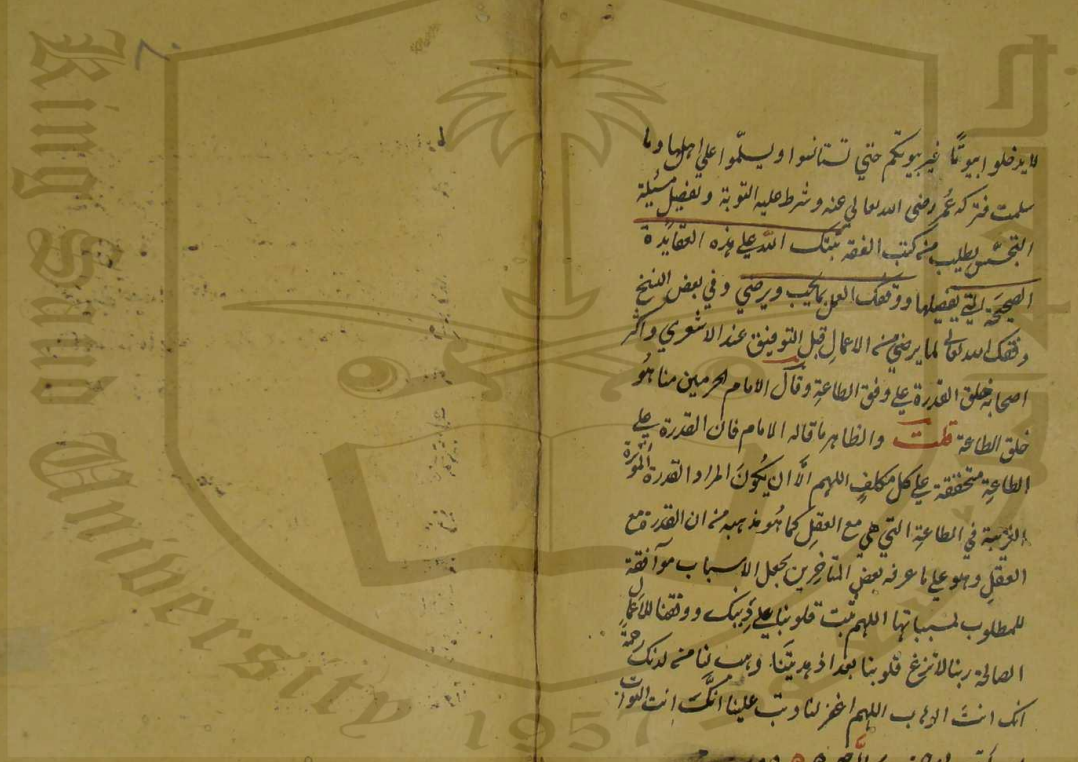 لا يدخلوا بيوتًا غير بيوتكم حتي تستانسوا ويسلّموا علي اهلها وما
سلمت فتركه عُمر رضى الله تعالي عنه وشرط عليه التوبة وتفصيل مسئلة
التجسّس يطلب من كتب الفقه ثبّتك اللّه علي هذه العقايدة
الصحيحة التي تفصيلها ووفقك العمل بما يحب ويرضي وفي بعض النسخ
وفقك الله تعالى لما يرضي من الاعمال قيل التوفيق عند الاشعري واكثر
اصحابه خلق القدرة علي وفق الطاعة وقال الامام الحرمين منا هُو
خلق الطاعة قلت والظاهر ما قاله الامام فان القدرة علي
الطاعة متحققة علي كل مكلف اللهم الّا ان يكُونَ المراد القدرة المؤثرة
القريبة في الطاعة التي هي مع العقل كما هُو مذهبه من ان القدرة مع
العقل وهو علي ما عرفه بعض المتاخرين بجعل الاسباب موافقة
للمطلوب لمسبباتها اللهم ثبت قلوبنا علي دينك ووفقنا للاعمال
الصالحة ربنا لا تزغ قلوبنا بعد اذ هديتَنا وهب لنا من لدنك رحمةً
انك انتَ الوهاب اللهم اغفر لنا وتب علينا انّكَ انت التواب
King Saud University
1957